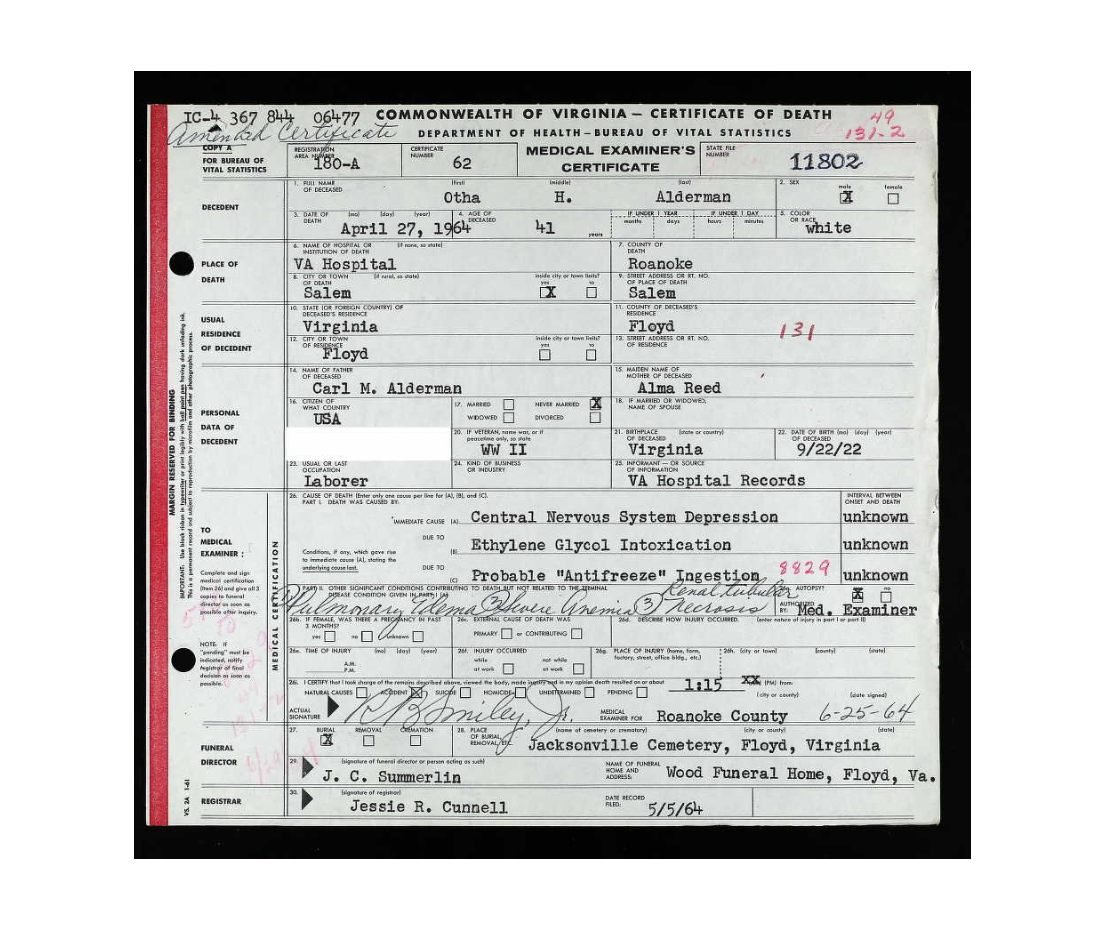 IC-4 367 844 06477 COMMONWEALTH OF VIRGINIA — CERTIFICATE OF DEATH 49
Amended Certificate DEPARTMENT OF HEALTH — BUREAU OF VITAL STATISTICS 131-2
COPY A
FOR BUREAU OF VITAL STATISTICS
REGISTRATION AREA NUMBER 180-A
CERTIFICATE NUMBER 62
MEDICAL EXAMINER'S CERTIFICATE
STATE FILE NUMBER 11802
DECEDENT
1. FULL NAME OF DECEASED (first) (middle) (last)
Otha H. Alderman
2. SEX male X female
3. DATE OF DEATH (mo) (day) (year)
April 27, 1964
4. AGE OF DECEASED 41 years
IF UNDER 1 YEAR months days
IF UNDER 1 DAY hours minutes
5. COLOR OR RACE white
PLACE OF DEATH
6. NAME OF HOSPITAL OR INSTITUTION OF DEATH (if none, so state)
VA Hospital
7. COUNTY OF DEATH
Roanoke
8. CITY OR TOWN OF DEATH (if rural, so state) inside city or town limits? yes X no
Salem
9. STREET ADDRESS OR RT. NO. OF PLACE OF DEATH
Salem
USUAL RESIDENCE OF DECEDENT
10. STATE (OR FOREIGN COUNTRY) OF DECEASED'S RESIDENCE
Virginia
11. COUNTY OF DECEASED'S RESIDENCE
Floyd 131
12. CITY OR TOWN OF RESIDENCE inside city or town limits? yes no
Floyd
13. STREET ADDRESS OR RT. NO. OF RESIDENCE
PERSONAL DATA OF DECEDENT
14. NAME OF FATHER OF DECEASED
Carl M. Alderman
15. MAIDEN NAME OF MOTHER OF DECEASED
Alma Reed
16. CITIZEN OF WHAT COUNTRY
USA
17. MARRIED NEVER MARRIED X
WIDOWED DIVORCED
18. IF MARRIED OR WIDOWED, NAME OF SPOUSE
20. IF VETERAN, name war, or if peacetime only, so state
WW II
21. BIRTHPLACE OF DECEASED (state or country)
Virginia
22. DATE OF BIRTH (mo) (day) (year) OF DECEASED
9/22/22
23. USUAL OR LAST OCCUPATION
Laborer
24. KIND OF BUSINESS OR INDUSTRY
25. INFORMANT — OR SOURCE OF INFORMATION
VA Hospital Records
MARGIN RESERVED FOR BINDING
MEDICAL CERTIFICATION
TO MEDICAL EXAMINER:
Complete and sign medical certification (Item 26) and give all 3 copies to funeral director as soon as possible after inquiry.
NOTE: If "pending" must be indicated, notify registrar of final decision as soon as possible.
26. CAUSE OF DEATH (Enter only one cause per line for (A), (B), and (C).
PART I. DEATH WAS CAUSED BY:
INTERVAL BETWEEN ONSET AND DEATH
IMMEDIATE CAUSE (A) Central Nervous System Depression unknown
DUE TO
(B) Ethylene Glycol Intoxication unknown
Conditions, if any, which gave rise to immediate cause (A), stating the underlying cause last.
DUE TO
(C) Probable "Antifreeze" Ingestion 8829 unknown
PART II. OTHER SIGNIFICANT CONDITIONS CONTRIBUTING TO DEATH BUT NOT RELATED TO THE TERMINAL DISEASE CONDITION GIVEN IN PART I (A)
Pulmonary Edema Severe Anemia (3) Renal tubular necrosis
AUTOPSY? yes X no
AUTHORIZED BY: Med. Examiner
26b. IF FEMALE, WAS THERE A PREGNANCY IN PAST 3 MONTHS? yes no unknown
26c. EXTERNAL CAUSE OF DEATH WAS
PRIMARY or CONTRIBUTING
26d. DESCRIBE HOW INJURY OCCURRED. (enter nature of injury in part I or part II)
26e. TIME OF INJURY (mo) (day) (year)
A.M.
P.M.
26f. INJURY OCCURRED
while at work not while at work
26g. PLACE OF INJURY (home, farm, factory, street, office bldg., etc.)
26h. (city or town) (county) (state)
26i. I CERTIFY that I took charge of the remains described above, viewed the body, made inquiry and in my opinion death resulted on or about 1:15 XX (PM) from:
NATURAL CAUSES ACCIDENT X SUICIDE HOMICIDE UNDETERMINED PENDING
(city or county) (date signed)
ACTUAL SIGNATURE R B Smiley, Jr.
MEDICAL EXAMINER FOR Roanoke County 6-25-64
FUNERAL DIRECTOR
27. BURIAL X REMOVAL CREMATION
28. PLACE OF BURIAL, REMOVAL, ETC. (name of cemetery or crematory) (city or county) (state)
Jacksonville Cemetery, Floyd, Virginia
29. (signature of funeral director or person acting as such)
J. C. Summerlin
NAME OF FUNERAL HOME AND ADDRESS: Wood Funeral Home, Floyd, Va.
REGISTRAR
30. (signature of registrar)
Jessie R. Cunnell
DATE RECORD FILED: 5/5/64
VS. 2A 1-61